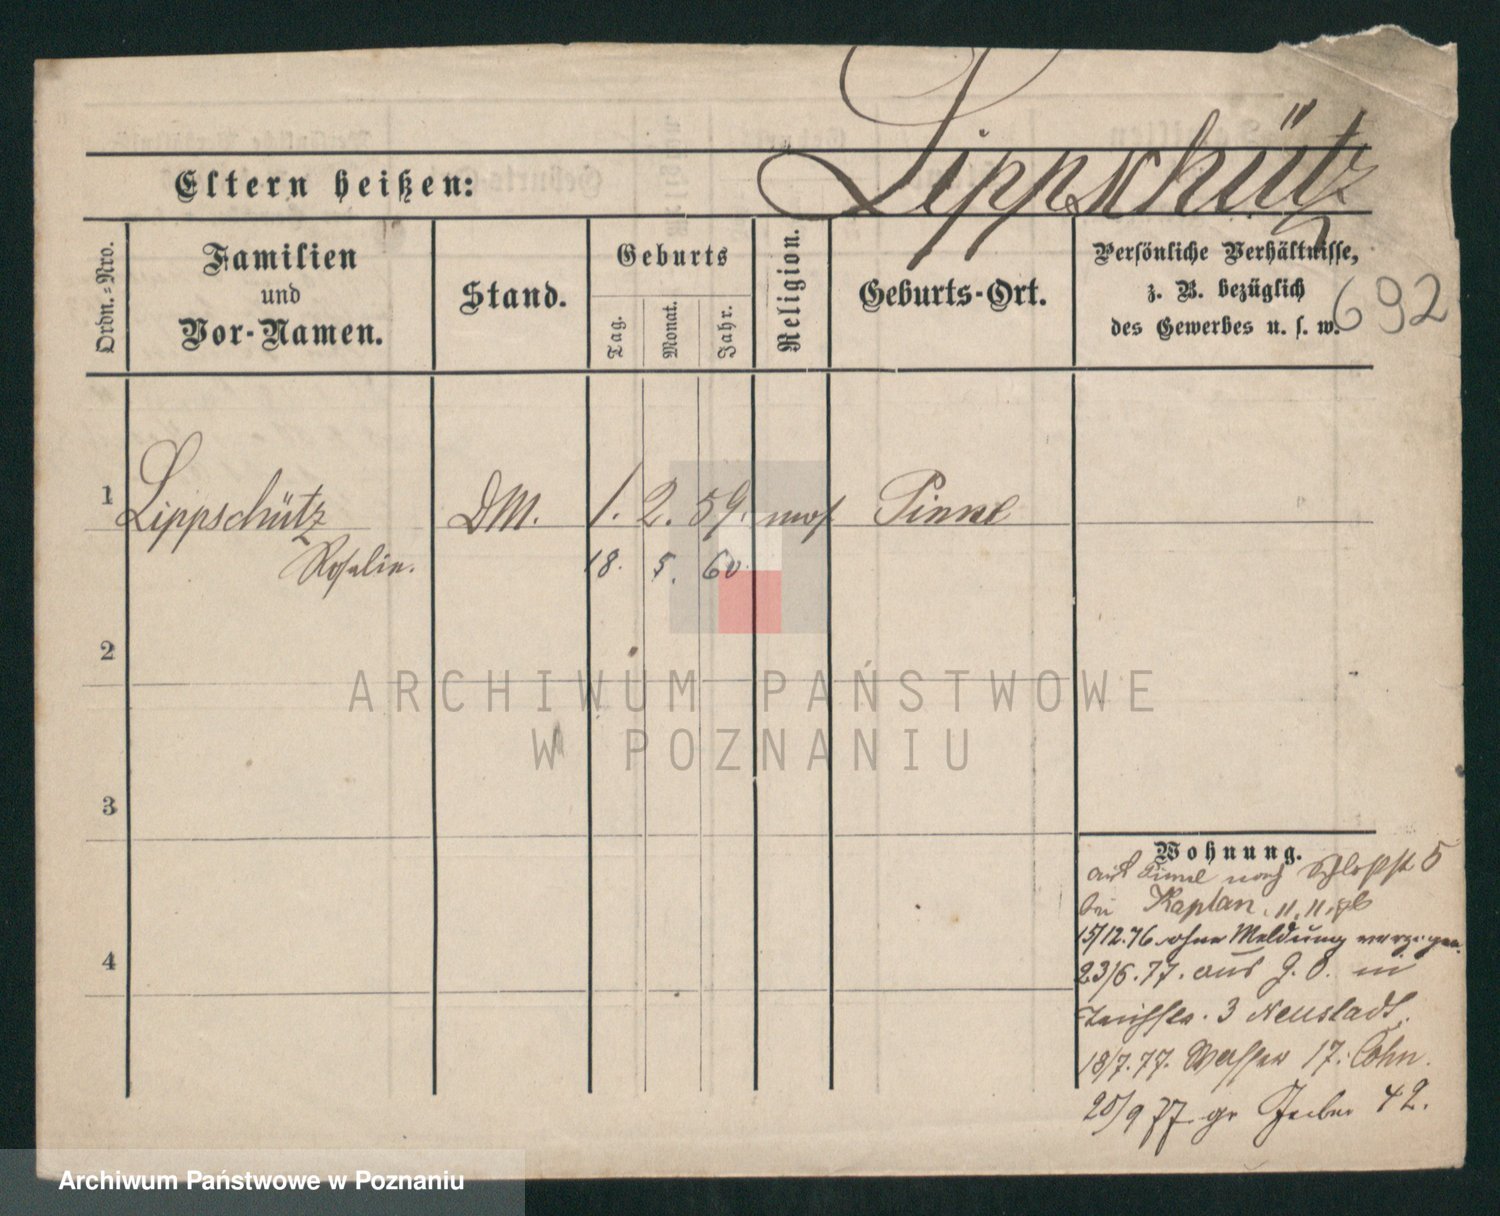 Lippschütz
Eltern heißen:
Ordn.=Nro.
Familien
und
Vor-Namen.
Stand.
Geburts
Tag.
Monat.
Jahr.
Religion.
Geburts-Ort.
Persönliche Verhältnisse,
z. B. bezüglich
des Gewerbes u. s. w.
692
1 Lippschütz DM. 1. 2. 59. mos Pinne
Rosalie. 18. 5. 60.
2
3
4
ARCHIWUM PAŃSTWOWE
W POZNANIU
Wohnung.
aus Pinne nach Schloßst 5
bei Kaplan. 11.
15/12.76. ohne Meldung verzogen.
23/6.77. aus in
3 Neustadt.
18/7.77. Wasser 17. Cohn.
20/9 77 gr Gerber 42.
Archiwum Państwowe w Poznaniu